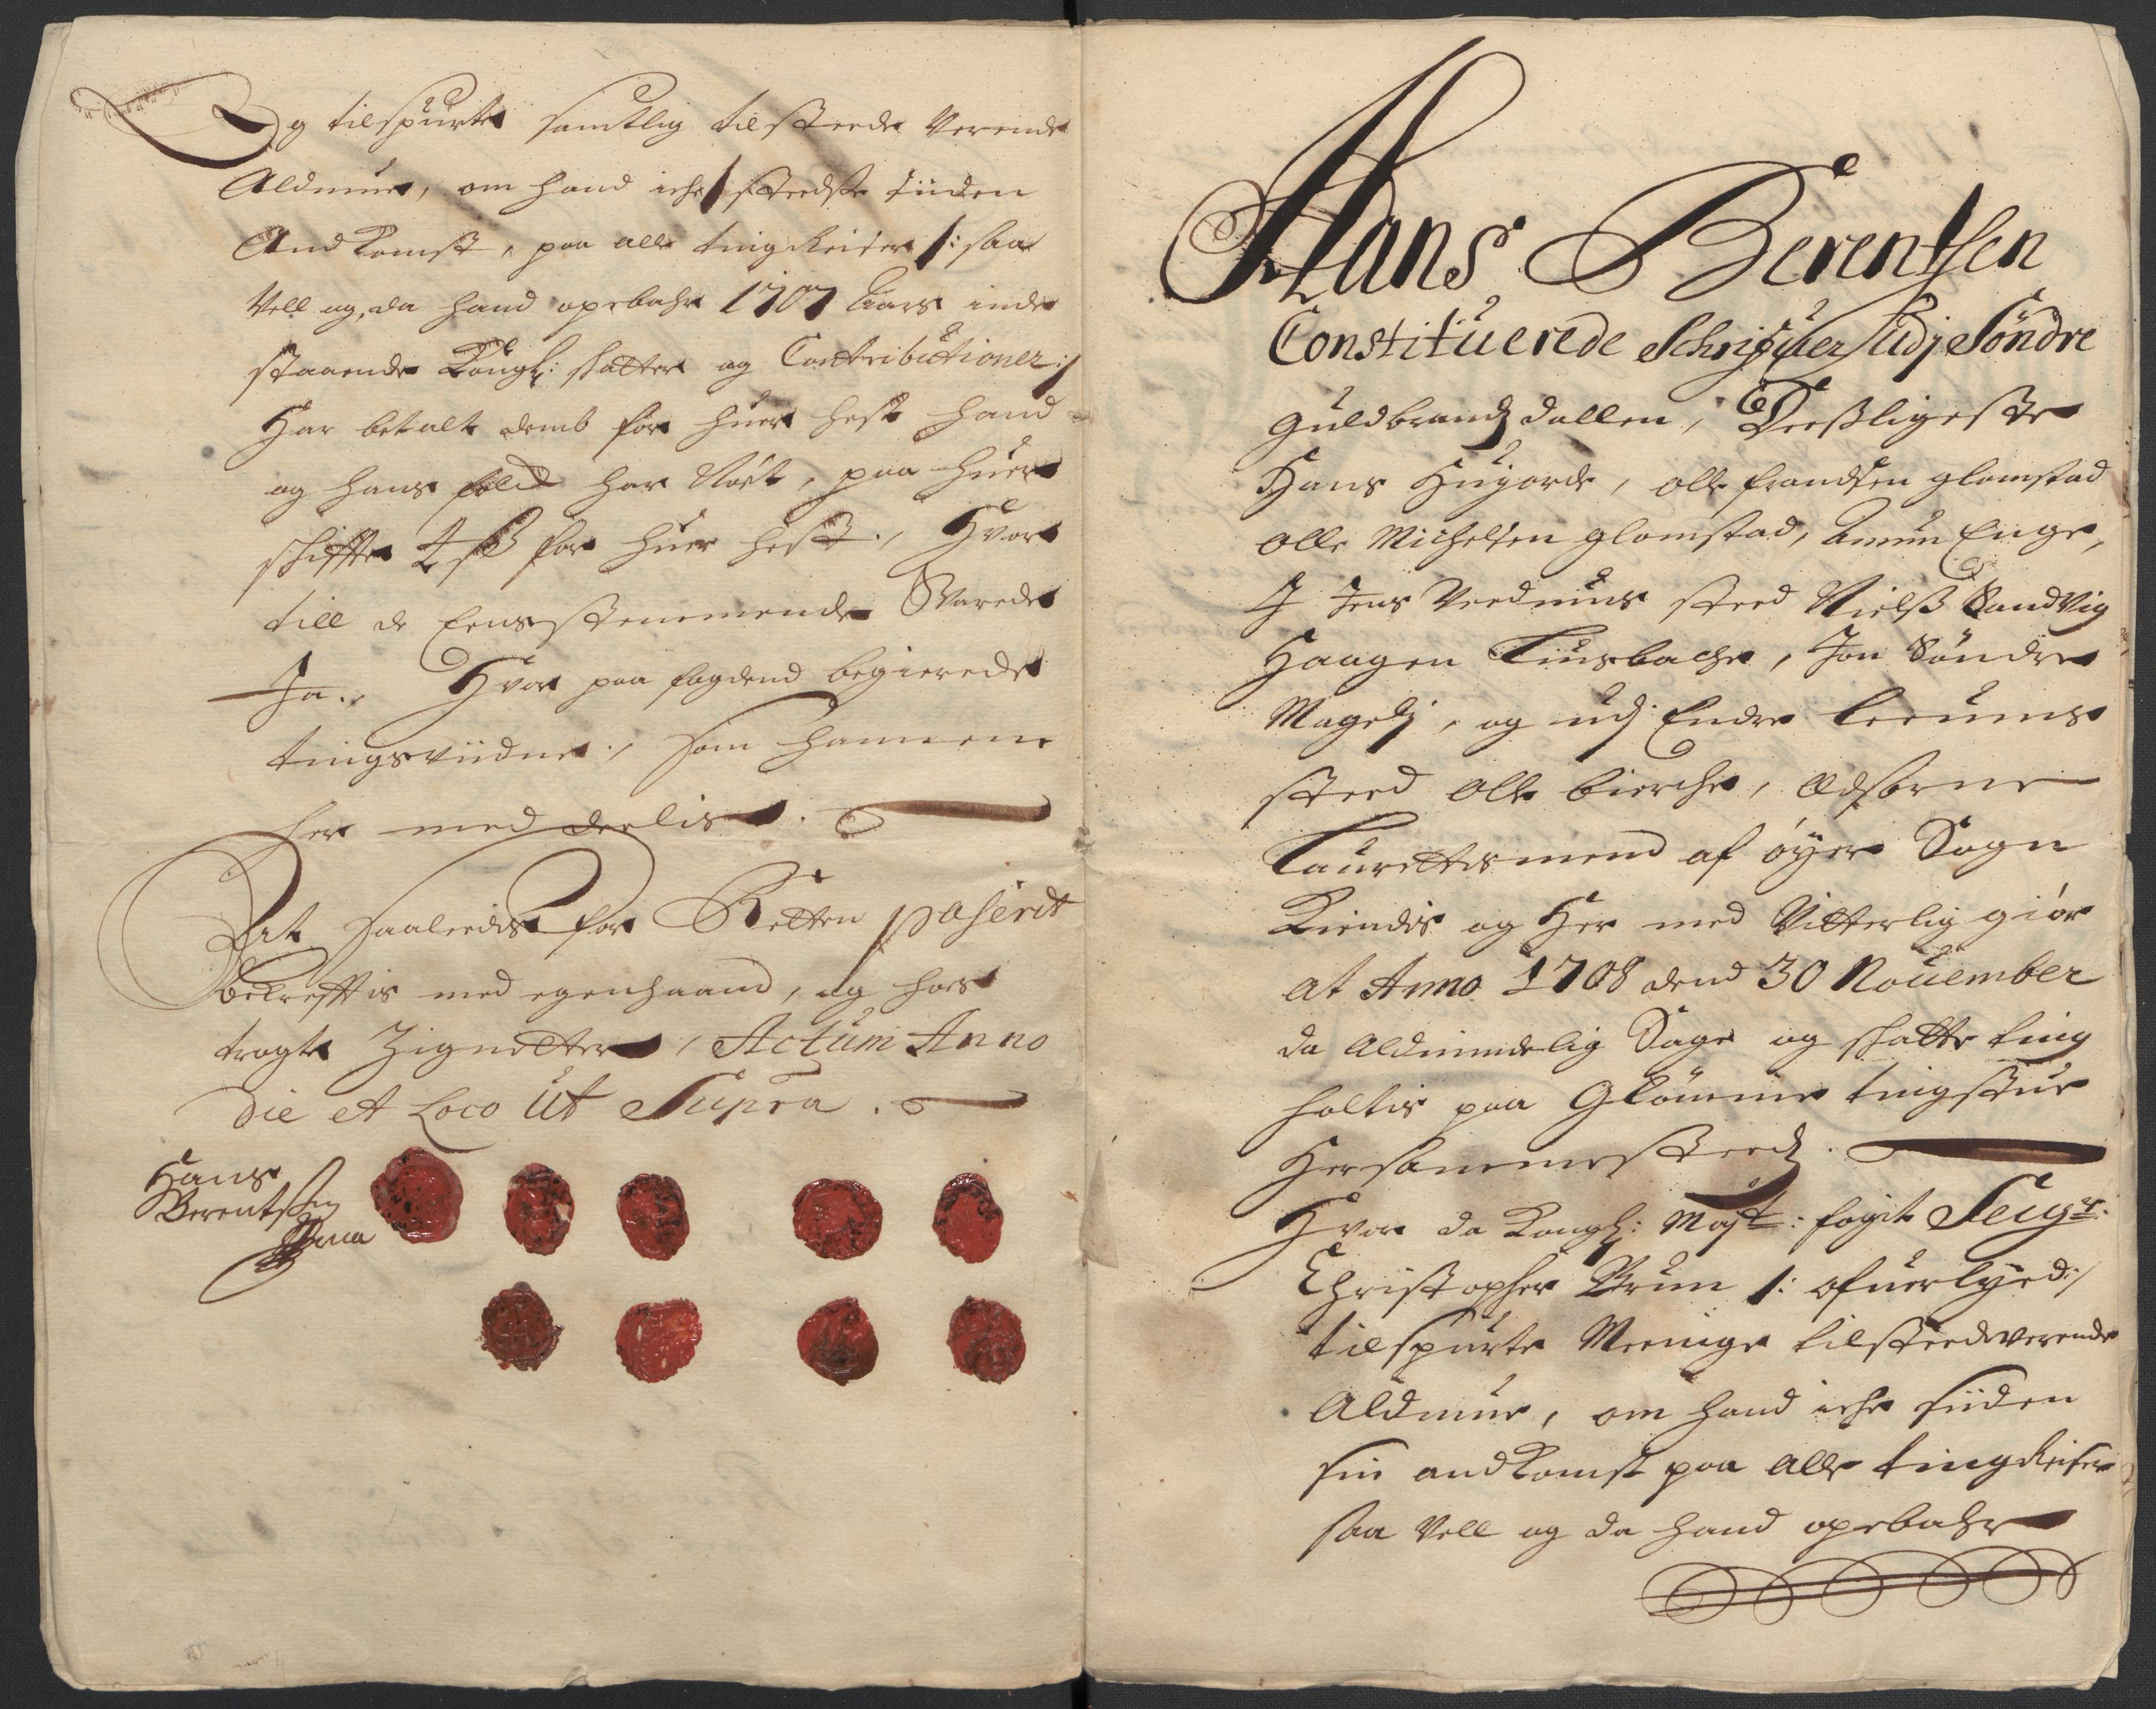 Og tilspurte samtlig tilsteede Verende
Aldmue, om hand iche steedse siiden
And Komst, paa alle tingReiser /: saa
Vell og, da hand opebahr 1707 Aars inde
staaende Kongl: skatter og Contributioner :/
Har betalt demb for huer hest hand
og hans folck har Nøt, paa huer
skiffte 4 sk for huer hest, Hvor
till de Eensstemmende Svarede
Ja. Hvor paa fogdend begierede
tingsviidne, som hannem
her med deelis.
Dit saaleedis for Retten paserit
bekrefftis med egenhaand, og hos
trogte Zignetter, Actum Anno
die et Loco Ut Supra.
Hans
Berentssen
Hans Berentsen
Constituerede Schrifuer udj Søndre
Guldbrandsdallen, Deesligeste
Hans Hugorde, olle frandsen glomstad
olle Michelsen glomstad, Amun Enge,
I Jens Veedmus steed Nielss Sandvig
Haagen Kiusbache, Jon Søndre
Magelj, og udj Endre leerums
steed olle bierche, Edsorne
Laurettismend af öÿer Sogn
Kiendis og Her med Vitterlig giør
at Anno 1708 dend 30 Nouember
da Aldmindelig Sage og skatte ting
holtis paa Glømme tingstue
Hersammesteedz.
Hvor da Kongl: Mayt: fogit Seigr.
Christopher Brun /: ofuerlyed :/
tilspurte Meenige tilsteedeverende
Aldmue, om hand iche siiden
sin andkomst paa alle tingReiser
saa Vell og da hand opebahr